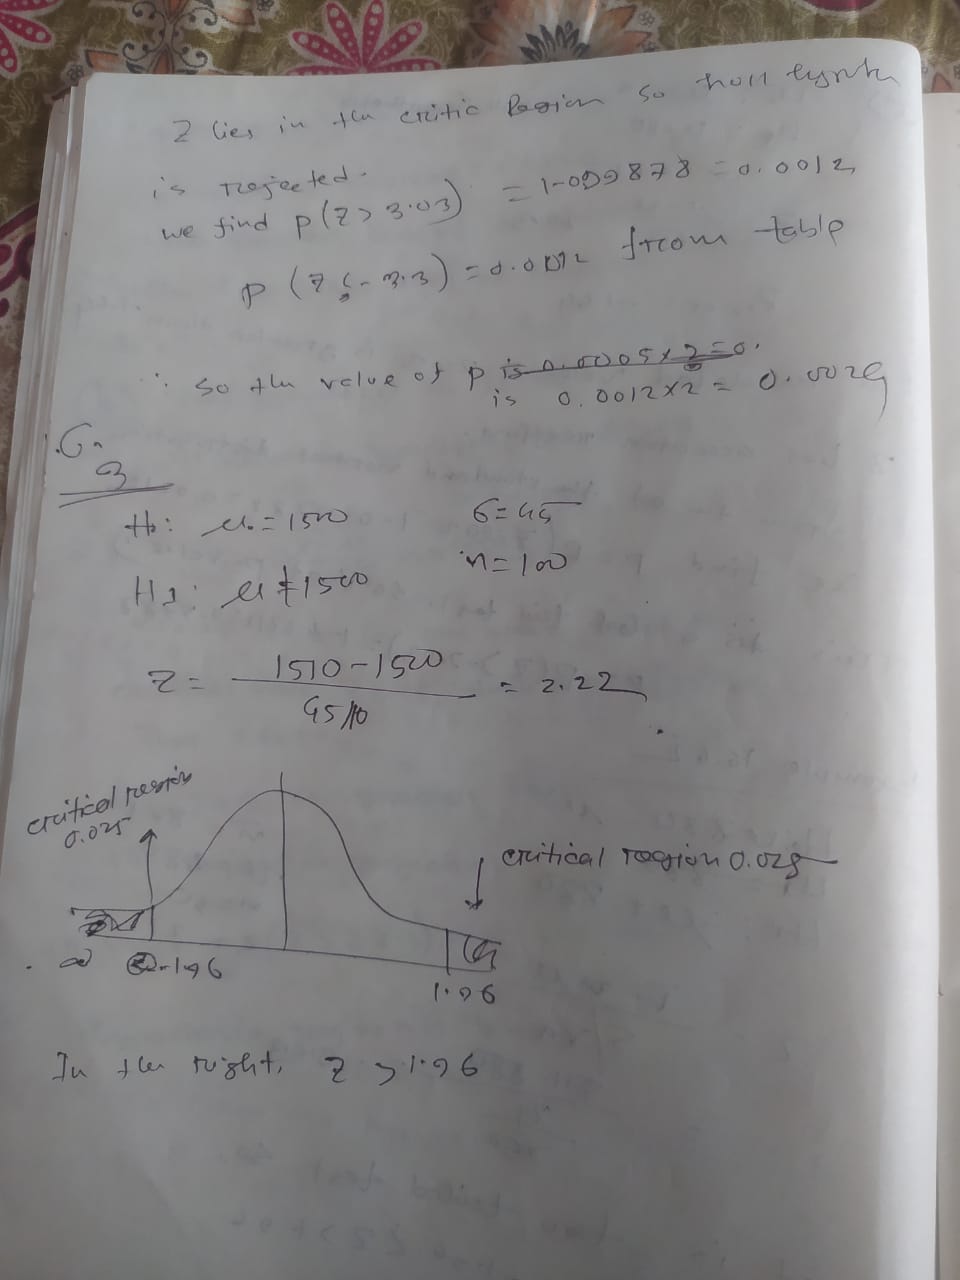 Z lies in the critic Region so null
is rejected.
we find P(Z > 3.03) = 1-0.99878 = 0.0012
P (Z ≤ - 3.3) = 0.0012 from table
∴ so the value of p is 0.0005 x 2 = 0.
is 0.0012 x 2 = 0.0029
3
H₀: μ₀ = 1500 σ = 45
n = 100
H1: μ ≠ 1500
Z = 1510 - 1500 / 45/10 = 2.22
critical region
0.025
critical region 0.025
-1.96
1.96
In the right, Z > 1.96